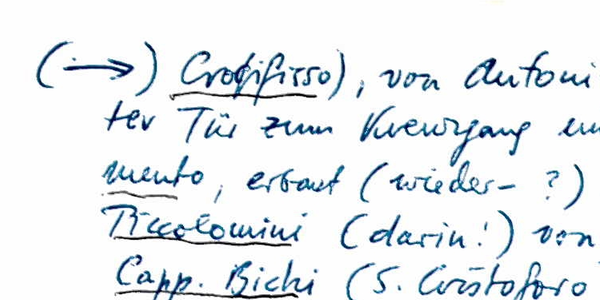 (→) Crocifisso), von Antoni
ter Tür zum Kreuzgang
mento, erbaut (wieder- ?)
Piccolomini (darin!) von
Capp. Bichi (S. Cristoforo